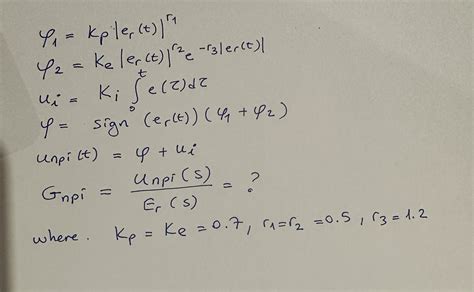 φ₁ = Kp |er(t)|^r₁
φ₂ = Ke |er(t)|^r₂ e^-r₃|er(t)|
ui = Ki ∫₀ᵗ e(τ)dτ
φ = sign (er(t)) (φ₁ + φ₂)
unpi(t) = φ + ui
Gnpi = Unpi(s) / Er(s) = ?
where. Kp = Ke = 0.7, r₁=r₂ =0.5, r₃=1.2